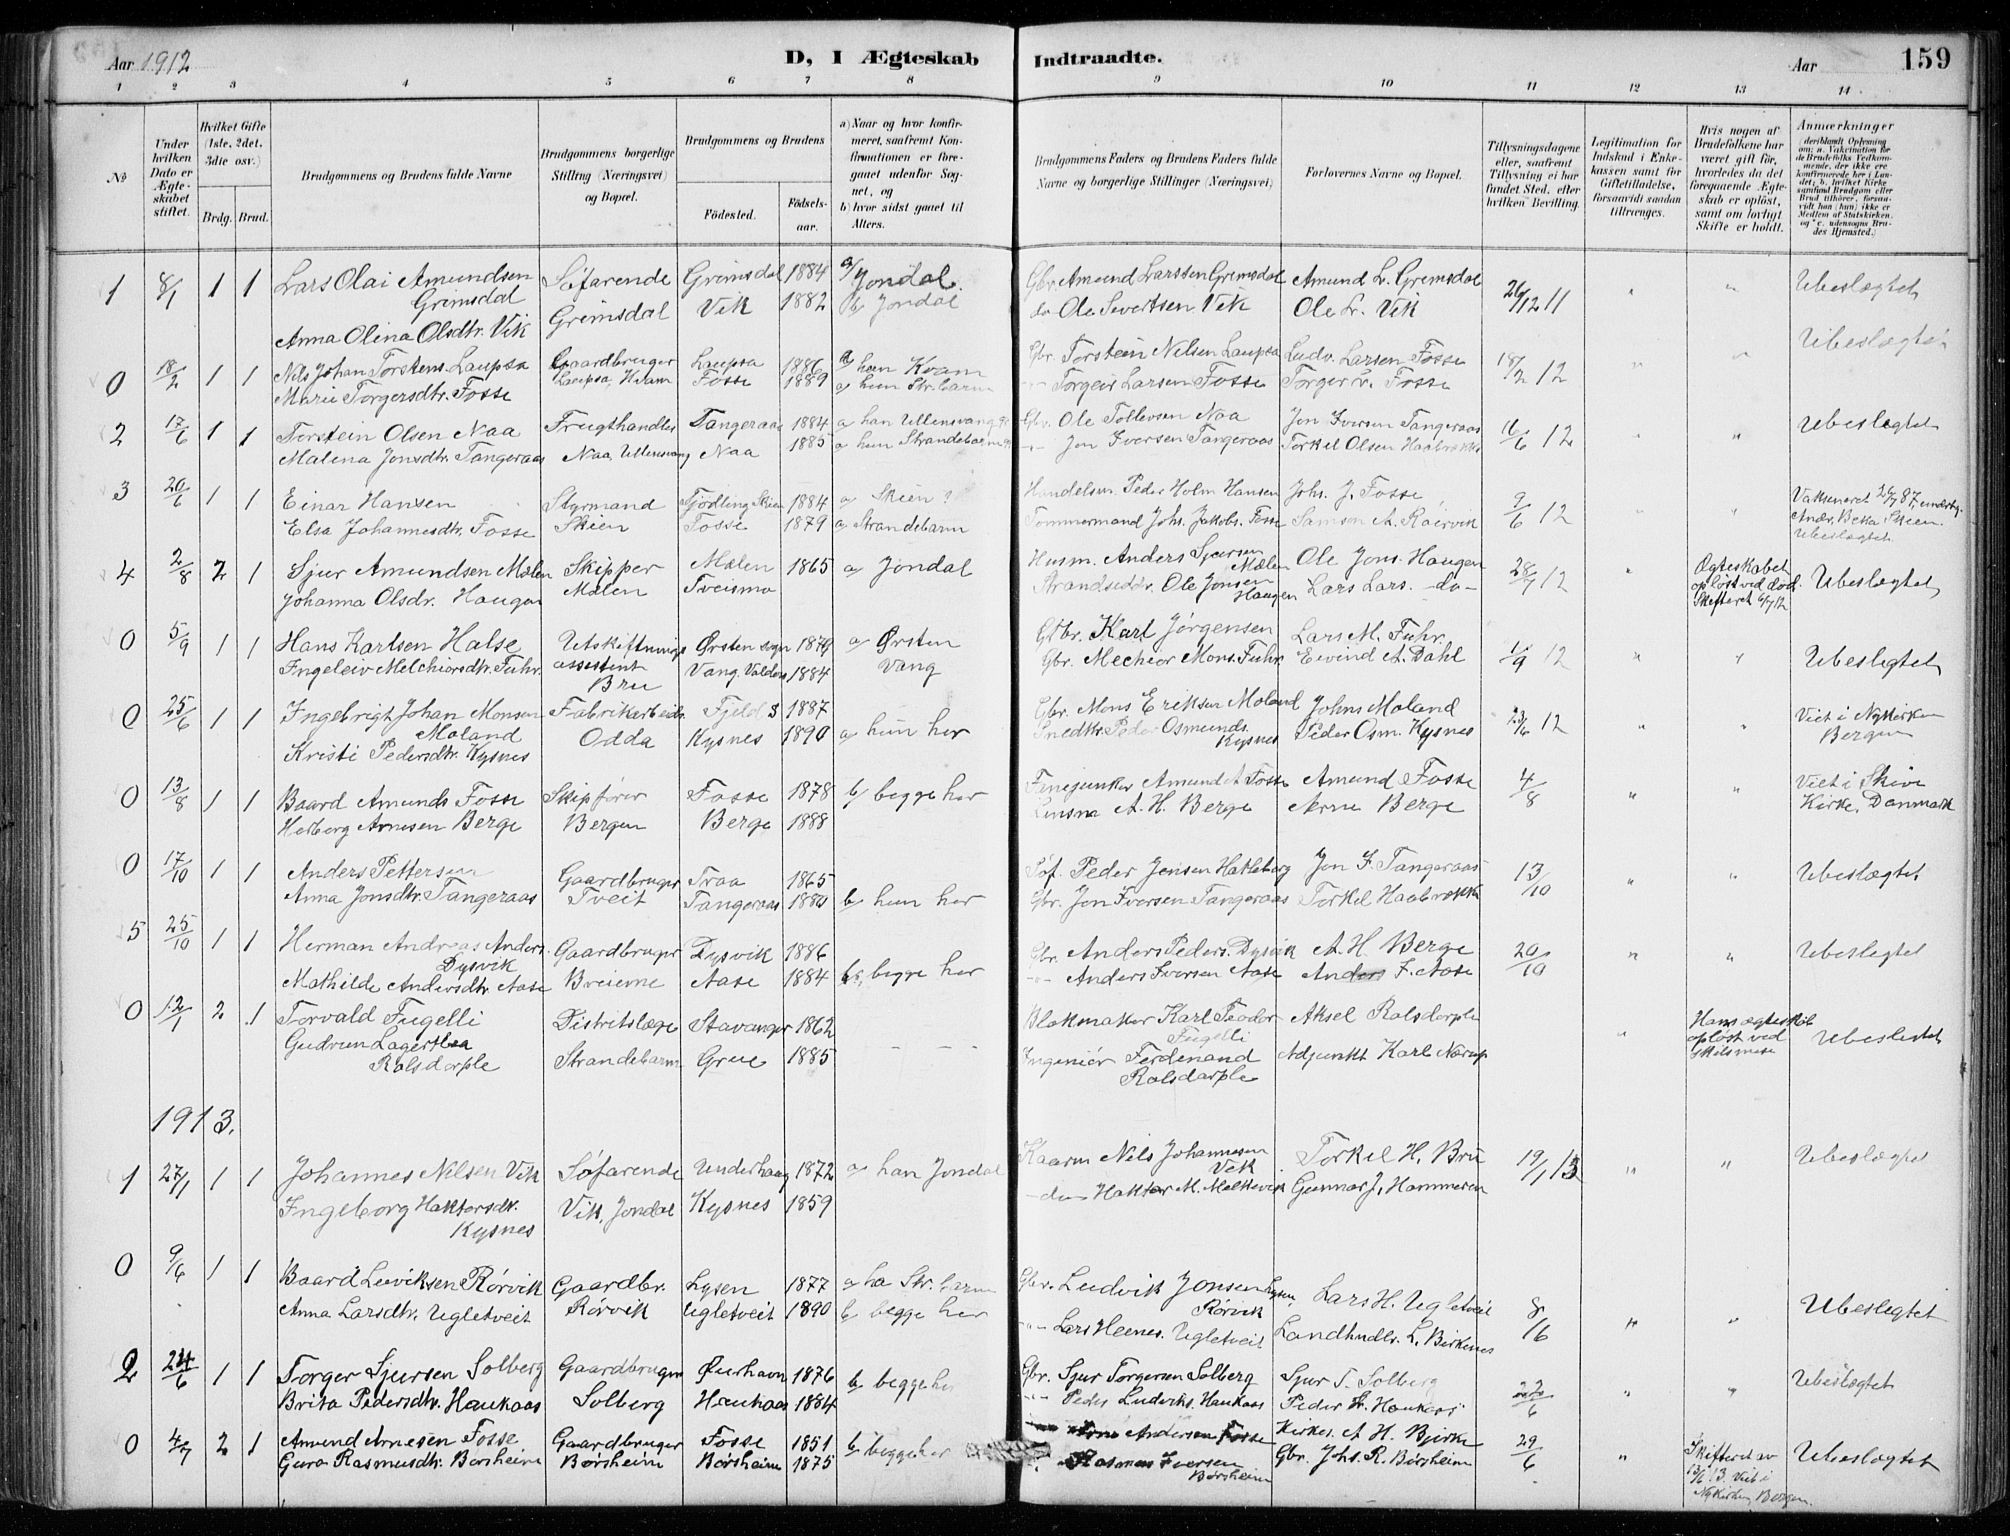 Aar 1912
D, I Ægteskab Indtraadte.
Aar
159
1 2 3 4 5 6 7 8 9 10 11 12 13 14
No
Under hvilken Dato er Ægteskabet stiftet.
Hvilket Gifte (1ste, 2det, 3die osv.)
Brdg. Brud.
Brudgommens og Brudens fulde Navne
Brudgommens borgerlige Stilling (Næringsvei) og Bopæl.
Brudgommens og Brudens
Fødested.
Fødselsaar.
a) Naar og hvor konfirmeret, saafremt Konfirmationen er foregaaet udenfor Sognet, og
b) hvor sidst gaaet til Alters.
Brudgommens Faders og Brudens Faders fulde Navne og borgerlige Stillinger (Næringsvei)
Forlovernes Navne og Bopæl.
Tillysningsdagene eller, saafremt Tillysning ei har fundet Sted, efter hvilken Bevilling.
Legitimation for Indskud i Enkekassen samt for Giftetilladelse, forsaavidt saadan tiltrænges.
Hvis nogen af Brudefolkene har været gift før, hvorledes da det foregaaende Ægteskab er opløst, samt om lovligt Skifte er holdt.
Anmærkninger
1 8/1 1 1 Lars Olai Amundsen Grimsdal Søfarende Grimsdal 1884 a/ Jondal. Gbr. Amund Larssen Grimsdal Amund L. Grimsdal 26/12 11 " " Ubeslægtet
Anna Olina Olsdtr. Vik Grimsdal Vik 1882 b/ Jondal do Ole Sivertsen Vik Ole L. Vik
0 18/2 1 1 Nils Johan Torstens. Laupsa Gaardbruger Laupsa 1886 a/ han Kvam Gbr. Torstein Nilsen Laupsa Ludv. Larsen Fosse 18/2 12 " " Ubeslægtet
Mari Torgersdtr. Fosse Laupsa, Kvam Fosse 1889 a/ hun Str.barm Torgeir Larsen Fosse Torger L. Fosse
2 17/6 1 1 Torstein Olsen Naa Frugthandler Tangeraas 1884 a/ han Ullensvang Gbr. Ole Tollevsen Naa Jon Iversen Tangeraas 16/6 12 " " Ubeslegtet
Malena Jonsdtr. Tangeraas Naa, Ullensvang Naa 1885 a/ hun Strandebarm Jon Iversen Tangeraas Torkel Olsen Haabrekke
3 20/6 1 1 Einar Hansen Styrmand Skien 1884 a/ Skien ? Handelsm. Peder Holm Hansen Johs. J. Fosse 9/6 12 " Vaksineret
Elsa Johannesdtr. Fosse Skien Fosse 1879 a/ Strandebarm Tømmermand Johs. Jakobs. Fosse Samson A. Rørvik Skien. Ubeslægtet
4 2/8 2 1 Sjur Amundsen Mælen Skipper Mælen 1865 a/ Jondal Husm. Anders Sjursen Mælen Ole Jons. Haugen 28/7 12 " Ægteskabet opløst ved død. Skifteret 6/7 12 Ubeslægtet
Johanna Olsdr. Haugen Mælen Tveismo Ole Jonsen Haugen Lars Lars. -do-
0 5/9 1 1 Hans Karlsen Halse Utskiftnings- Ørsten sogn 1879 a/ Ørsten Gbr. Karl Jørgensen Lars M. Fuhr. 1/9 12 " " Ubeslegtet
Ingeleiv Melchiorsdtr. Fuhr. assestent Bru Vang. Valdres 1884 Vang Gbr. Mechior Mons. Fuhr. Eivind A. Dahl
0 25/6 1 1 Ingebrigt Johan Monsen Moland Fabrikarbeid. Fjeld 1887 Gbr. Mons Eriksen Moland Johns Moland 23/6 12 " " Viet i Nykirken Bergen
Kristi Pedersdtr. Kysnes Odda Kysnes 1890 a/ hun her Snedkr. Peder Osmunds. Kysnes Peder Osm. Kysnes
0 13/8 1 1 Baard Amunds Fosse Skipfører Fosse 1878 b/ begge her Amund A Fosse Amund Fosse 4/8 " " Viet i Skive Kirke, Danmark
Herborg Arnesen Berge Bergen Berge 1888 Lensm A. H. Berge Arne Berge
0 17/10 1 1 Anders Pettersen Gaardbruger Traa 1865 Søf. Peder Jensen Hatleberg Jon I. Tangeraas 13/10 " " Ubeslægtet
Anna Jonsdtr. Tangeraas Tveit Tangeraas 1880 b/ hun her Gbr. Jon Iversen Tangeraas Torkel Haabrekke
5 25/10 1 1 Herman Andreas Anders. Dysvik Gaardbruger Dysvik 1886 Gbr. Anders Peders. Dysvik A. H. Berge 20/10 " " Ubeslægtet
Mathilde Andersdtr. Aase Breierne Aase 1884 b/ begge her Anders Iversen Aase Anders I. Aase
0 12/1 2 1 Torvald Fugelli Distritslæge Stavanger 1862 Blokmaker Karl Teodor Fugelli Aksel Rolsdorph " Hans ægteskab opløst ved skilsmisse Ubeslegtet
Gudrun Lagertha Rolsdorph Strandebarm Grue 1885 - - - Ingeniør Ferdinand Rolsdorph Adjunkt Karl Nærup
1913.
1 27/1 1 1 Johannes Nilsen Vik Søfarende Underhaug 1872 a/ han Jondal Kaarm Nils Johannesen Vik Torkel H. Bru 19/1 13 " " Ubeslægtet
Ingeborg Haktorsdtr. Kysnes Vik, Jondal Kysnes 1859 do Haktor M. Melkevik Gunnar J. Hammeren
0 9/6 1 1 Baard Loviksen Rørvik Gaardbr. Lysen 1877 a/ ha Str.barm Gbr. Ludvik Jonsen Lysen, Rørvik Lars H. Ugletveit 8/16 " " Ubeslegtet
Anna Larsdtr. Ugletveit Rørvik Ugletveit 1890 b/ begge her Lars Ugletveit Landhndlr. L. Birkenes
2 24/6 1 1 Torger Sjursen Solberg Gaardbruger Øierhavn 1876 b/ begge her Gbr. Sjur Torgersen Solberg Sjur T. Solberg 22/6 " " Ubeslægtet
Brita Pedersdtr. Haukaas Solberg Haukaas 1884 Peder Ludviks. Haukaas Peder L. Haukaas
0 4/7 2 1 Amund Arnesen Fosse Gaardbruger Fosse 1851 b/ begge her Arne Andersen Fosse Kirkes. A H. Bjerke 29/6 " Skifteret av 13/6 13. Viet i Nykirken, Bergen. Ubeslægtet
Guro Rasmusdtr. Børsheim Børsheim Børsheim 1875 Rasmus Iversen Børsheim Gbr. Johs. R. Børsheim